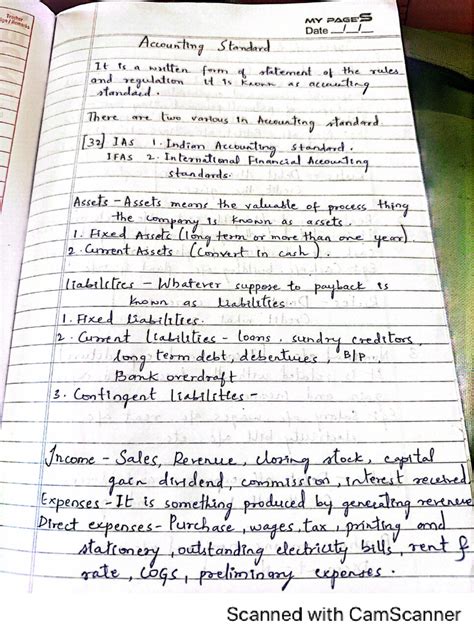 Teacher
Sign / Remarks
MY PAGES
Date __/__/__
Accounting Standard
It is a written form of statement of the rules
and regulation it is known as accounting
standard.
There are two various in Accounting standard
[32] IAS 1. Indian Accounting Standard.
IFAS 2. International Financial Accounting
standards.
Assets - Assets means the valuable of process thing
the company is known as assets.
1. Fixed Assets (long term or more than one year).
2. Current Assets (Convert in cash).
liabilities - Whatever suppose to payback is
known as liabilities.
1. Fixed liabilities.
2. Current liabilities - loans, sundry creditors,
long term debt, debentures, B/P
Bank overdraft
3. Contingent liabilities -
Income - Sales, Revenue, closing stock, capital
gain dividend, commission, interest received
Expenses - It is something produced by generating revenue
Direct expenses - Purchase, wages, tax, printing and
stationery, outstanding electricity bills, rent &
rate, COGS, preliminary expenses.
Scanned with CamScanner